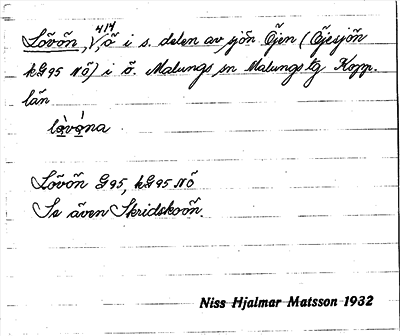 Lövön, √ 414 ö i s. delen av sjön Öjen (Öjesjön
kG95 NÖ) i ö. Malungs sn Malungs tg Kopp.
län
lòvòna
Lövön G95, kG95 NÖ
Se även Skridskoön.
Niss Hjalmar Matsson 1932